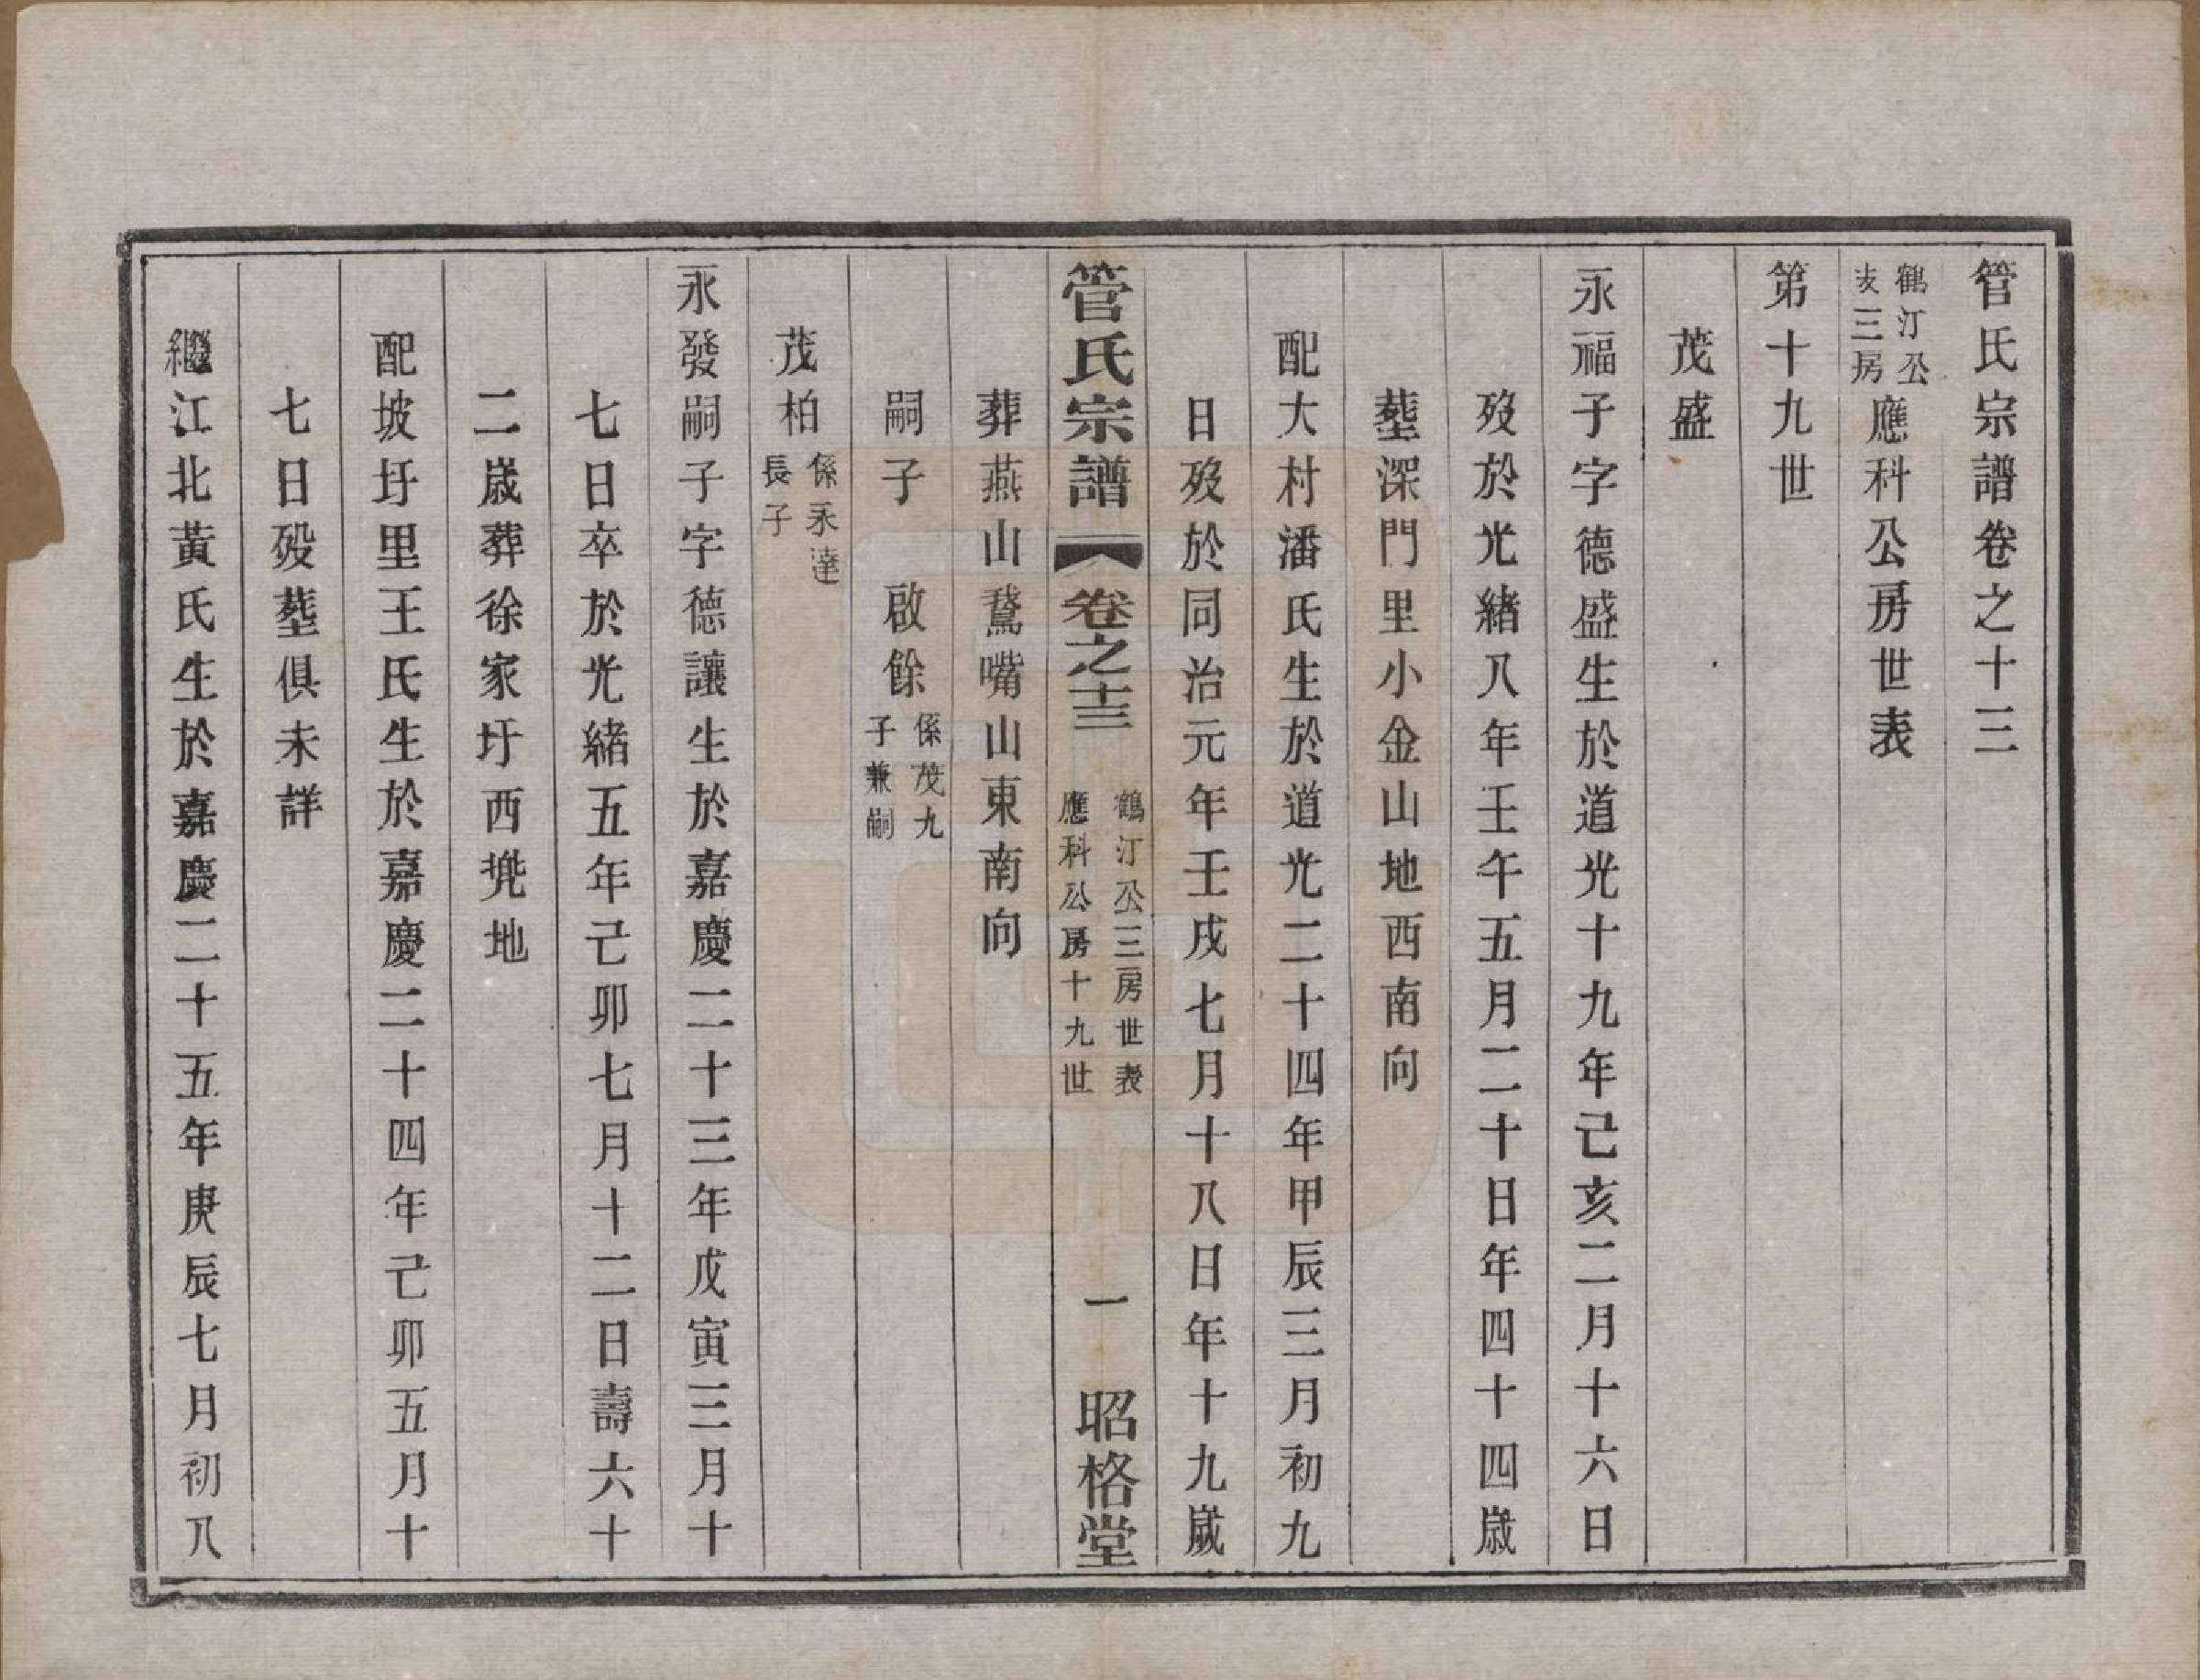 管氏宗譜卷之十三
鶴汀公支三房應科公房世表
第十九世
茂盛
永福子字德盛生於道光十九年己亥二月十六日
歿於光緒八年壬午五月二十日年四十四歲
塟深門里小金山地西南向
配大村潘氏生於道光二十四年甲辰三月初九
日歿於同治元年壬戌七月十八日年十九歲
管氏宗譜 卷之十三 鶴汀公三房世表 應科公房十九世 一 昭格堂
葬燕山鵞嘴山東南向
嗣子 啟餘係茂九子兼嗣
茂柏係永達長子
永發嗣子字德讓生於嘉慶二十三年戊寅三月十
七日卒於光緒五年己卯七月十二日壽六十
二歲葬徐家圩西兠地
配坡圩里王氏生於嘉慶二十四年己卯五月十
七日歿塟俱未詳
繼江北黃氏生於嘉慶二十五年庚辰七月初八